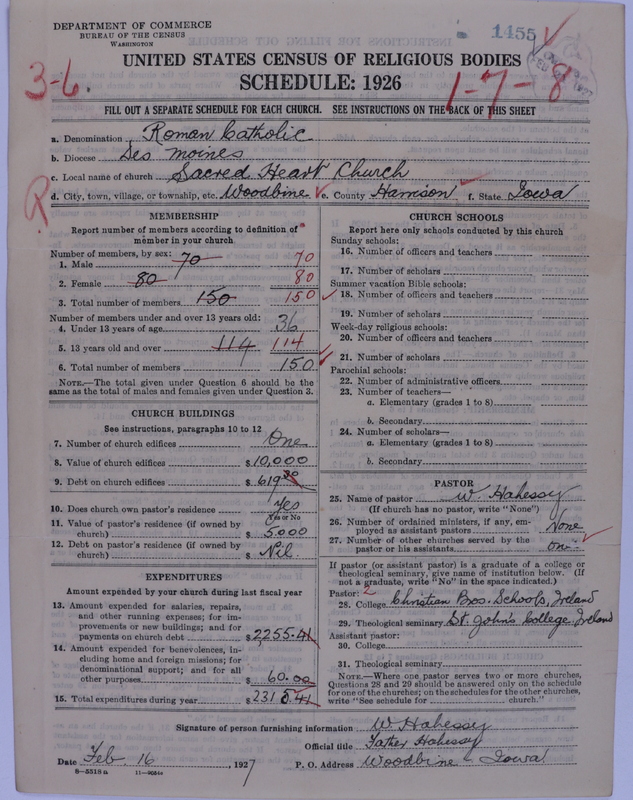 DEPARTMENT OF COMMERCE
BUREAU OF THE CENSUS
WASHINGTON
1455
UNITED STATES CENSUS OF RELIGIOUS BODIES
SCHEDULE: 1926
3-6.
1-7-8
FILL OUT A SEPARATE SCHEDULE FOR EACH CHURCH. SEE INSTRUCTIONS ON THE BACK OF THIS SHEET
a. Denomination Roman Catholic
b. Diocese Des Moines
c. Local name of church Sacred Heart Church
d. City, town, village, or township, etc. Woodbine e. County Harrison f. State Iowa
MEMBERSHIP
Report number of members according to definition of member in your church
Number of members, by sex:
1. Male 70 70
2. Female 80 80
3. Total number of members 150 150
Number of members under and over 13 years old:
4. Under 13 years of age 36
5. 13 years old and over 114 114
6. Total number of members 150
NOTE.—The total given under Question 6 should be
same as the total of males and females given under Question 3.
CHURCH BUILDINGS
See instructions, paragraphs 10 to 12
7. Number of church edifices One
8. Value of church edifices $10,000
9. Debt on church edifices $619.30
10. Does church own pastor's residence yes
Yes or No
11. Value of pastor's residence (if owned by
church) $5.000
12. Debt on pastor's residence (if owned by
church) $Nil.
EXPENDITURES
Amount expended by your church during last fiscal year
13. Amount expended for salaries, repairs,
and other running expenses; for im-
provements or new buildings; and for
payments on church debt $2255.41
14. Amount expended for benevolences, in-
cluding home and foreign missions; for
denominational support; and for all
other purposes $60.00
15. Total expenditures during year $2315.41
CHURCH SCHOOLS
Report here only schools conducted by this church
Sunday schools:
16. Number of officers and teachers
17. Number of scholars
Summer vacation Bible schools:
18. Number of officers and teachers
19. Number of scholars
Week-day religious schools:
20. Number of officers and teachers
21. Number of scholars
Parochial schools:
22. Number of administrative officers
23. Number of teachers—
a. Elementary (grades 1 to 8)
b. Secondary
24. Number of scholars—
a. Elementary (grades 1 to 8)
b. Secondary
PASTOR
25. Name of pastor W. Hahessy
(If church has no pastor, write "None")
26. Number of ordained ministers, if any, em-
ployed as assistant pastors None
27. Number of other churches served by the
pastor or his assistants One
If pastor (or assistant pastor) is a graduate of a college or
theological seminary, give name of institution below. (If
not a graduate, write "No" in the space indicated.)
Pastor: 2
28. College Christian Bros. Schools, Ireland
29. Theological seminary St. John's College Ireland
Assistant pastor:
30. College
31. Theological seminary
NOTE.—Where one pastor serves two or more churches,
Questions 28 and 29 should be answered only on the schedule
for one of the churches; on the schedules for the other churches,
write "See schedule for church."
Signature of person furnishing information W Hahessy
Official title Father Hahessy
Date Feb 16, 1927 P. O. Address Woodbine Iowa
8-5318 a